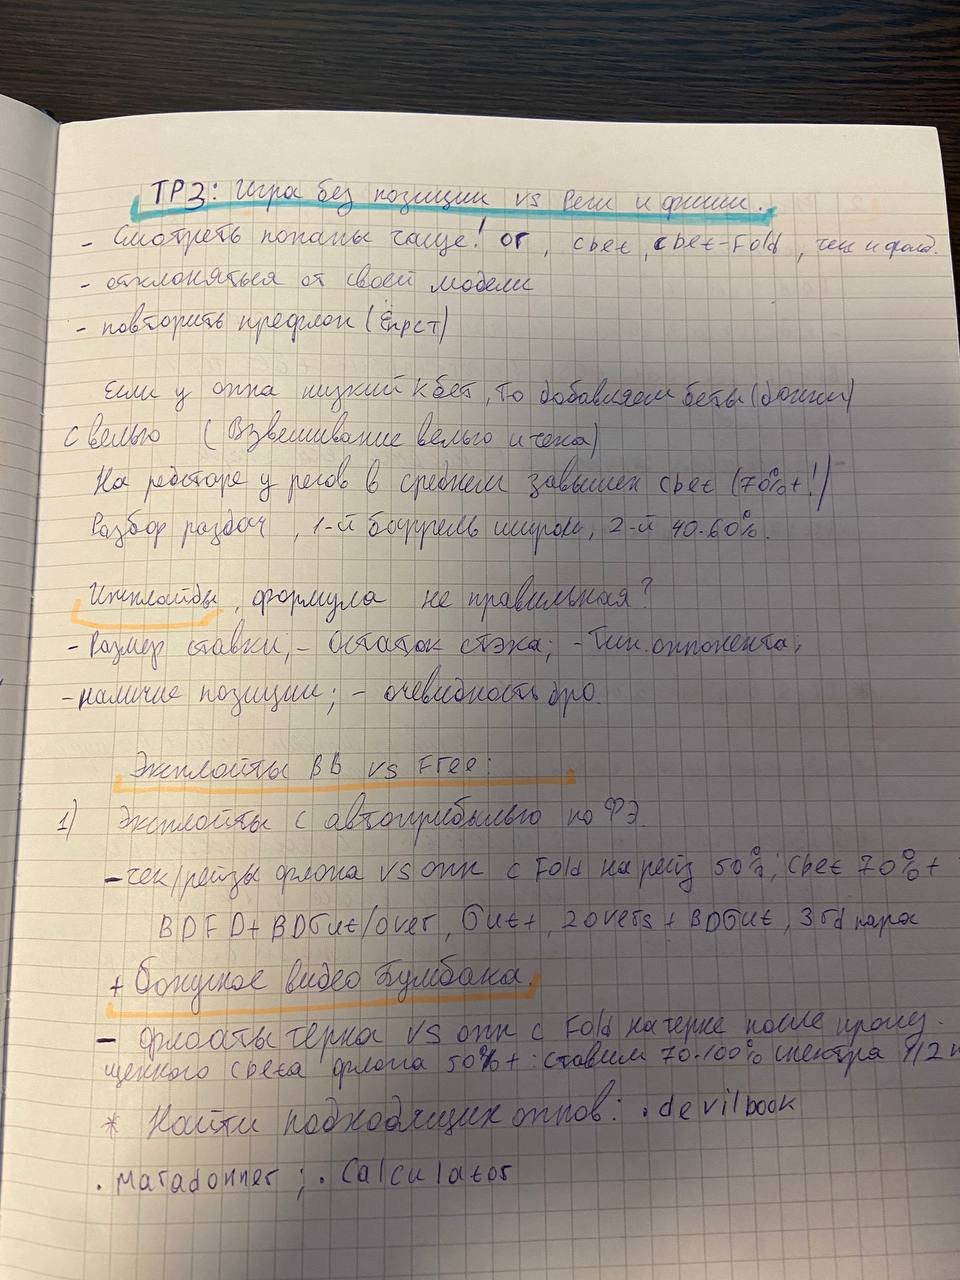 ТР3: Игра без позиции vs Реги и фиши.
- Смотреть попапы чаще! or, cbet, cbet-Fold, чек и фолд.
- отклоняться от своей модели
- повторить префлоп (Ёпрст)
Если у оппа низкий кбет, то добавляем беты (донки)
с велью (Взвешивание велью и чека)
На редстаре у регов в среднем завышен cbet (70%+!)
Разбор раздач, 1-й баррель широко, 2-й 40-60%.
Имплайды, формула не правильная?
- Размер ставки; - Остаток стэка; - Тип оппонента;
- наличие позиции; - очевидность дро.
Эксплойты BB vs Free:
1) Эксплойты с автоприбылью по ФЭ.
- чек/рейзы флопа vs опп с Fold на рейз 50%; cbet 70%+
BDFD+BDGut/over, Gut+, 2overs + BDGut, 3rd пара
+ Бонусное видео Бумбака.
- флоаты терна vs опп с Fold на терне после пропу-
щенного cbetа флопа 50%+: ставим 70-100% спектра 1/2
* Найти подходящих оппов: . devilbook
. Maradonner ; . Calculator